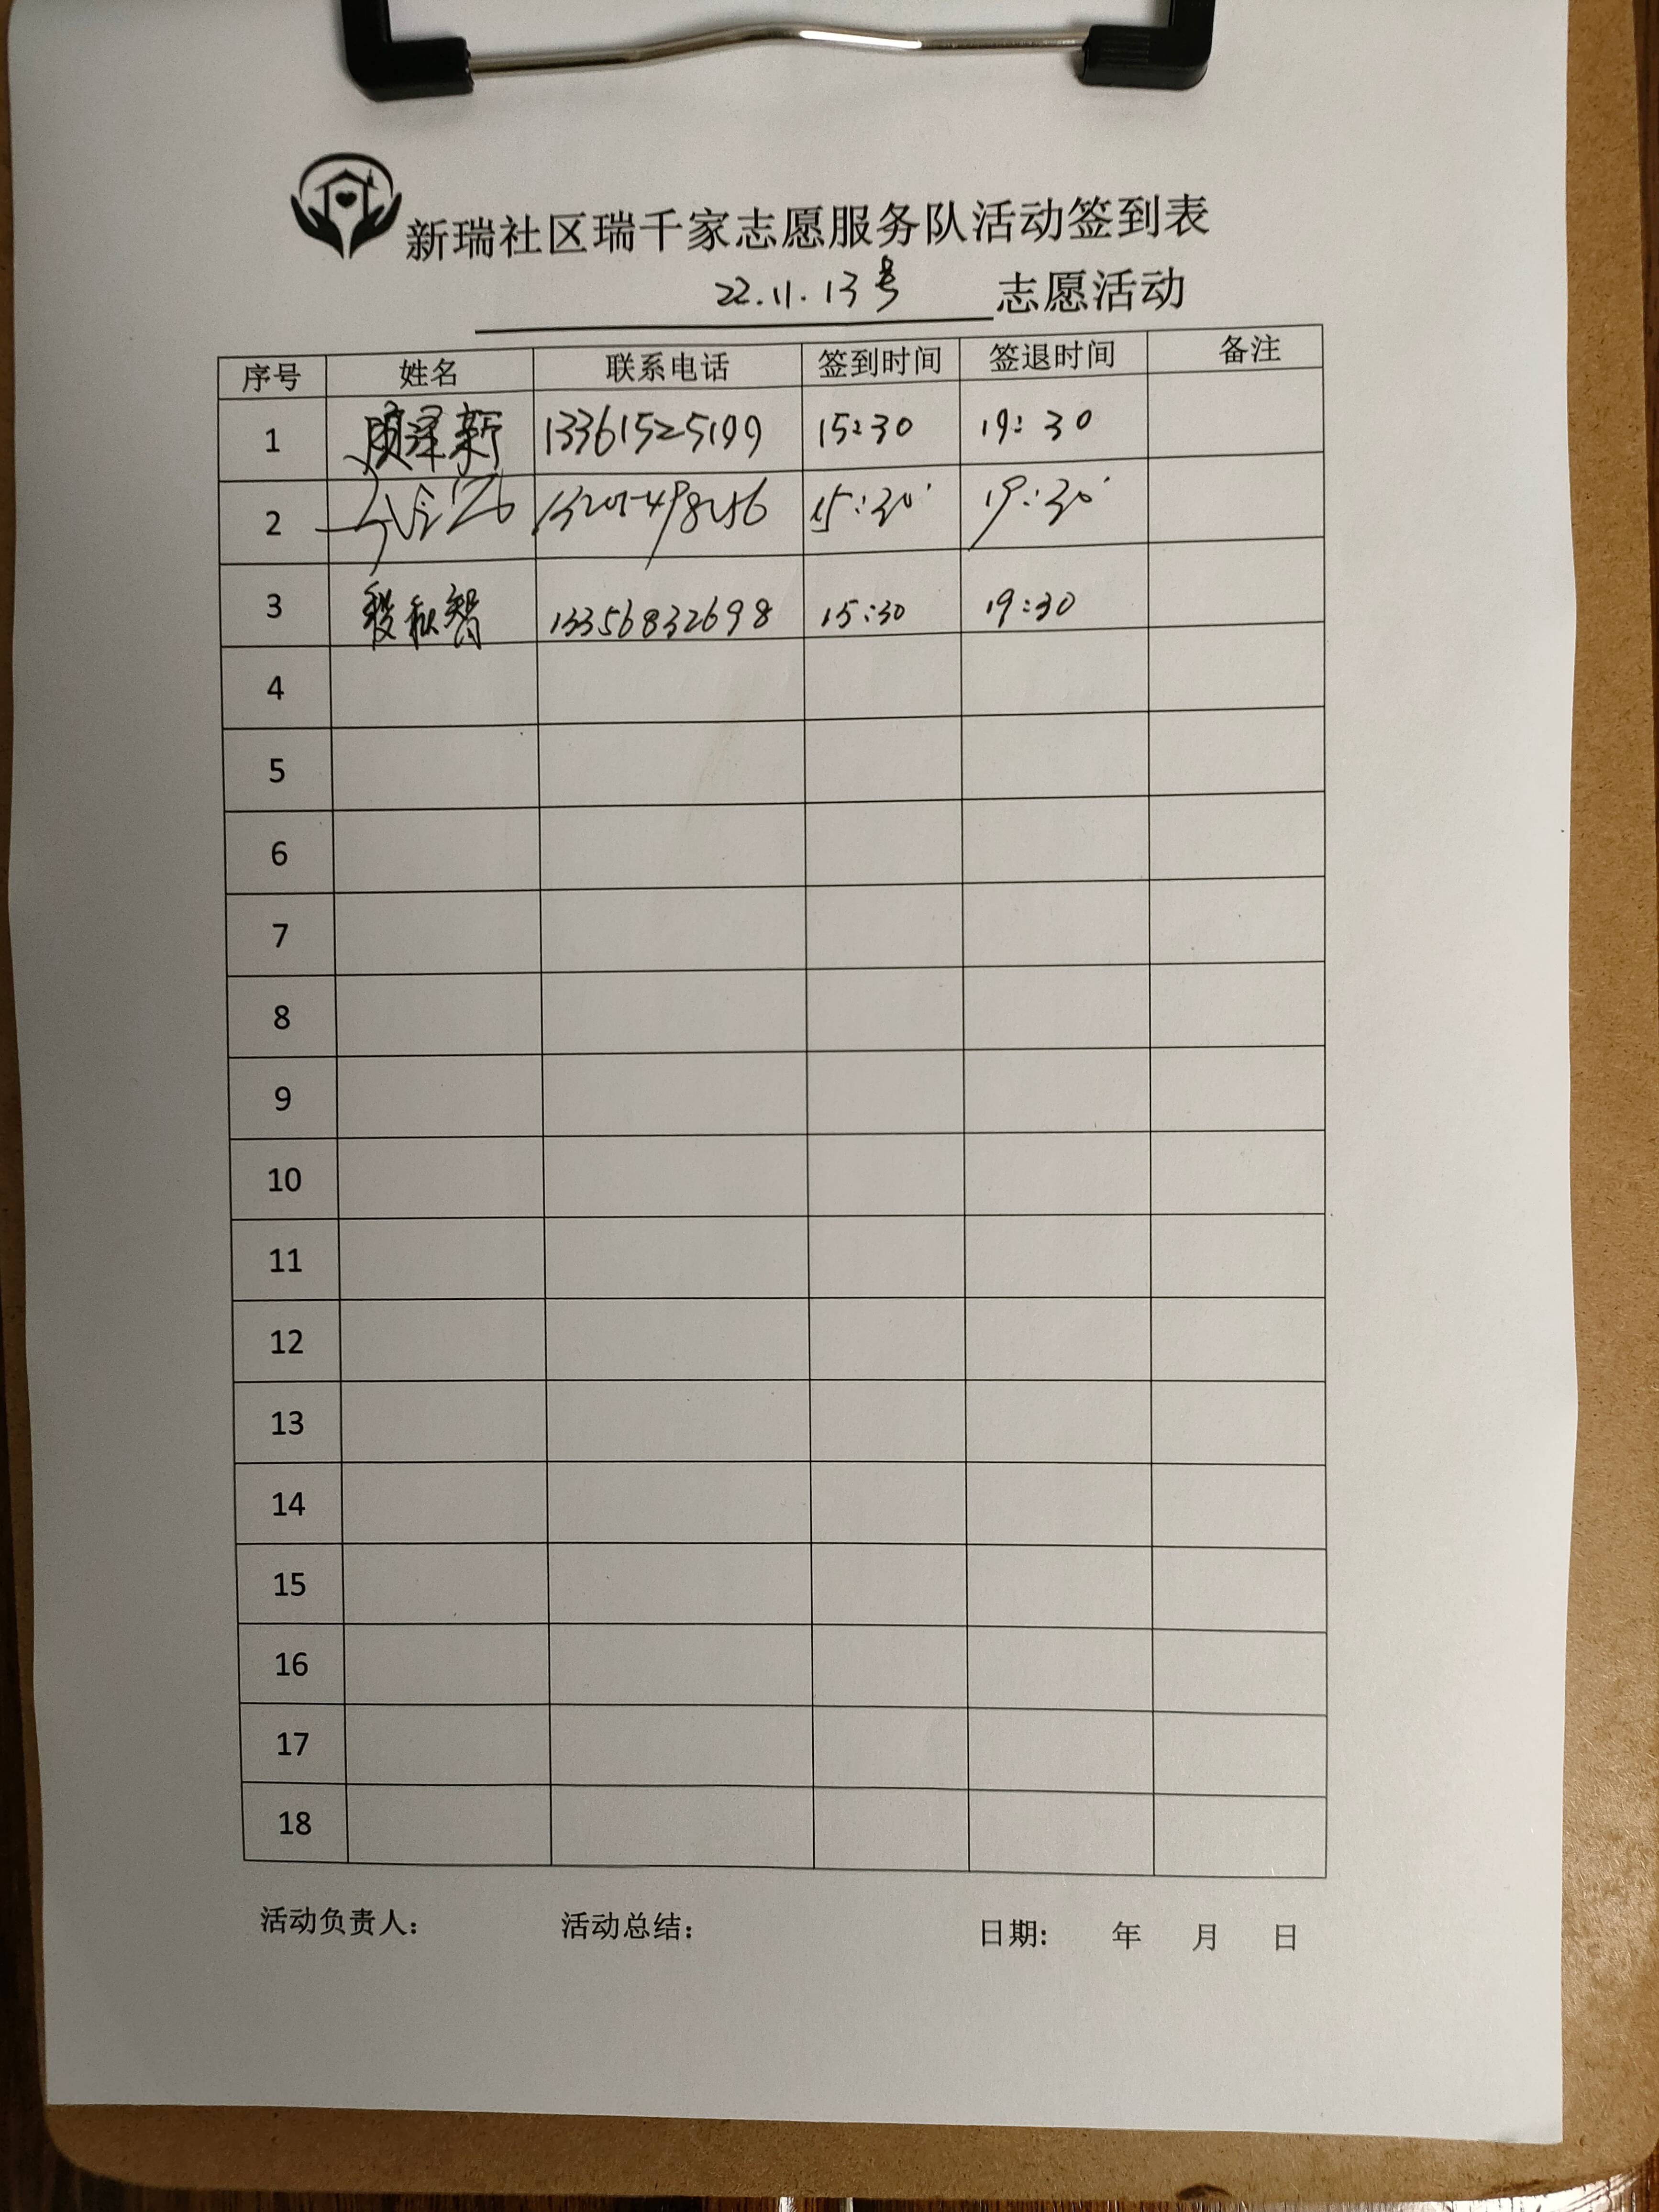 新瑞社区瑞千家志愿服务队活动签到表
22.11.13号 志愿活动
序号 姓名 联系电话 签到时间 签退时间 备注
1 泽新 13361525199 15:30 19:30
2 15:30 19:30
3 13356832698 15:30 19:30
4
5
6
7
8
9
10
11
12
13
14
15
16
17
18
活动负责人: 活动总结: 日期: 年 月 日